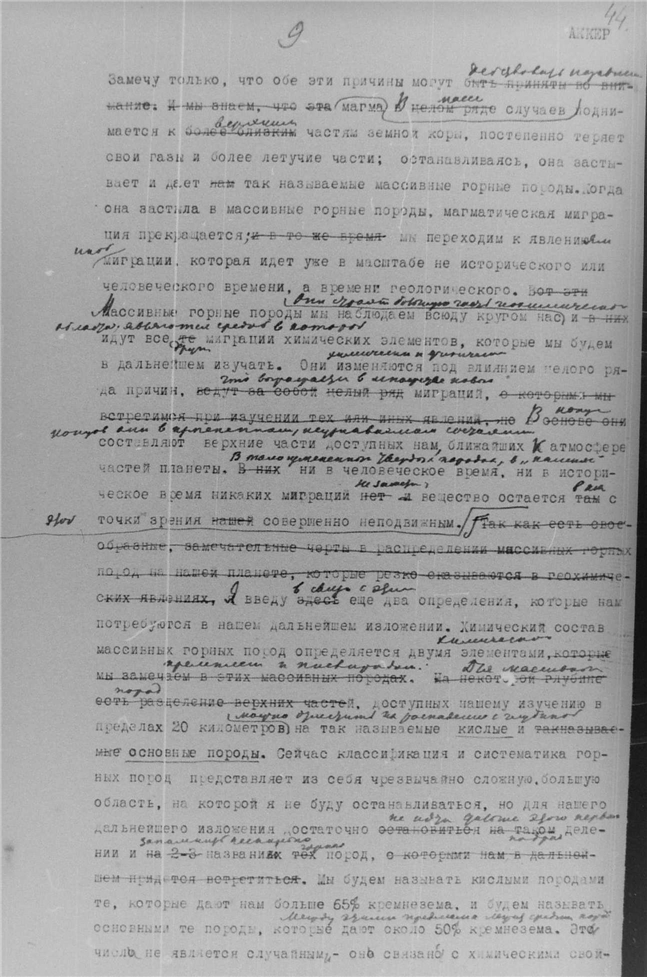 9
44.
АККЕР
действовать
Замечу только, что обе эти причины могут быть приняты во вни-
мание. И мы знаем, что эта магма В целом ряде случаев подни-
массе
верхним
мается к более близким частям земной коры, постепенно теряет
свои газы и более летучие части; останавливаясь, она засты-
вает и дает нам так называемые массивные горные породы. Когда
она застыла в массивные горные породы, магматическая мигра-
ция прекращается; и в то же время мы переходим к явлениям
иной
миграции, которая идет уже в масштабе не исторического или
человеческого времени, а времени геологического. Вот эти
Они строят большую часть
Массивные горные породы мы наблюдаем всюду кругом нас) и в них
являются средой в которой
идут все те миграции химических элементов, которые мы будем
други
химически и физически
в дальнейшем изучать. Они изменяются под влиянием целого ря-
что
да причин, ведут за собой целый ряд миграций, с которыми мы
встретимся при изучении тех или иных явлений, но В основе они
конце
концов они в
составляют верхние части доступных нам, ближайших К атмосфере
В
частей планеты. В них ни в человеческое время, ни в истори-
ческое время никаких миграций нет и вещество остается там с
этой
точки зрения нашей совершенно неподвижным. Так как есть свое-
образные, замечательные черты в распределении массивных горных
пород на нашей планете, которые резко сказываются в геохимиче-
ских явлениях, Я введу здесь еще два определения, которые нам
в связи с этим
потребуются в нашем дальнейшем изложении. Химический состав
химически
массивных горных пород определяется двумя элементами, которые
кремнием и кислородом.
Для массивных
мы замечаем в этих массивных породах. На некоторой глубине
пород
есть разделение верхних частей, доступных нашему изучению в
можно
пределах 20 километров) на так называемые кислые и такназывае-
мые основные породы. Сейчас классификация и систематика гор-
ных пород представляет из себя чрезвычайно сложную, большую
область, на которой я не буду останавливаться, но для нашего
не идя дальше этого первого
дальнейшего изложения достаточно остановиться на таком деле-
нии и на 2-3 названиях тех пород, с которыми нам в дальней-
шем придется встретиться. Мы будем называть кислыми породами
те, которые дают нам больше 65% кремнезема, и будем называть
Между этими пределами
основными те породы, которые дают около 50% кремнезема. Эти
числа не является случайным, - оне связаны с химическими свой-